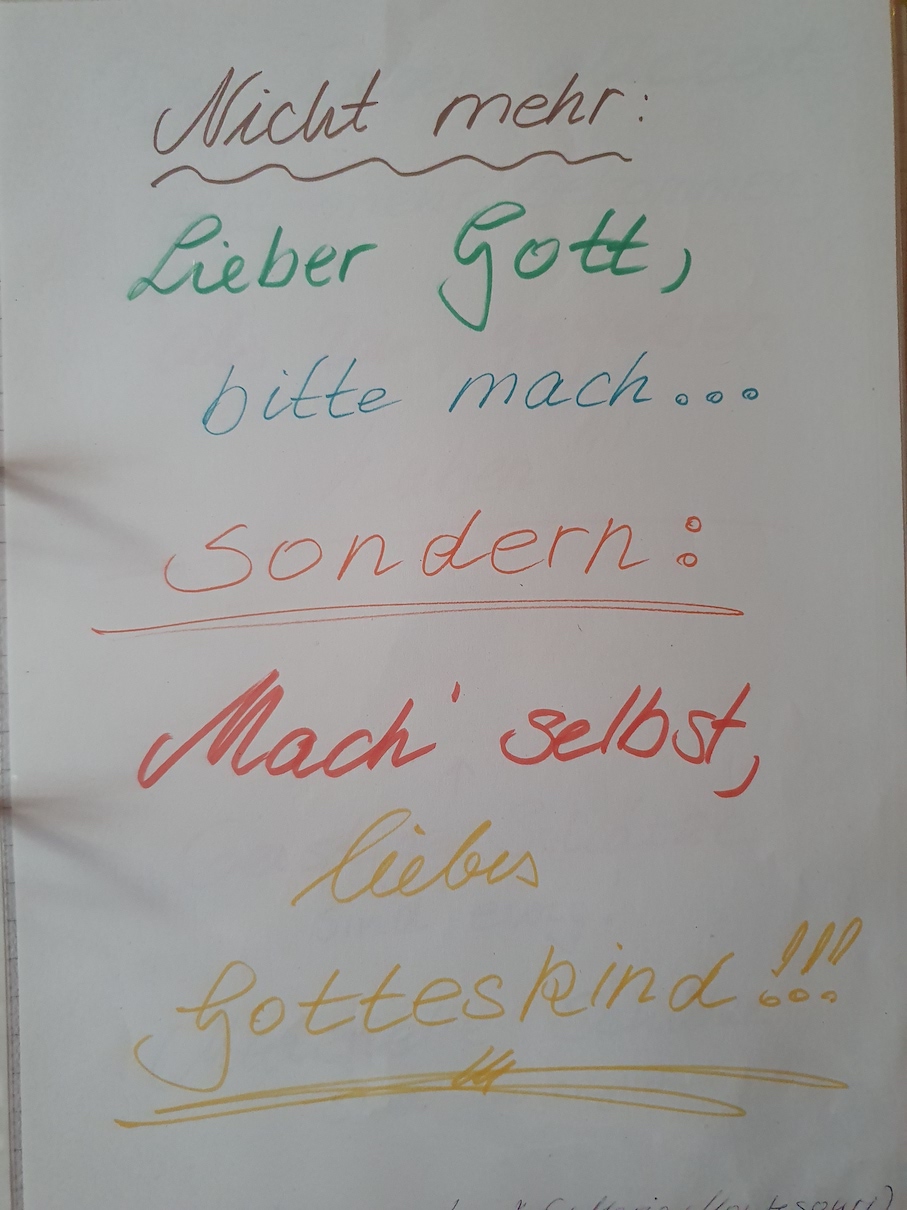 Nicht mehr:
Lieber Gott,
bitte mach...
Sondern:
Mach' selbst,
liebes
Gotteskind!!!